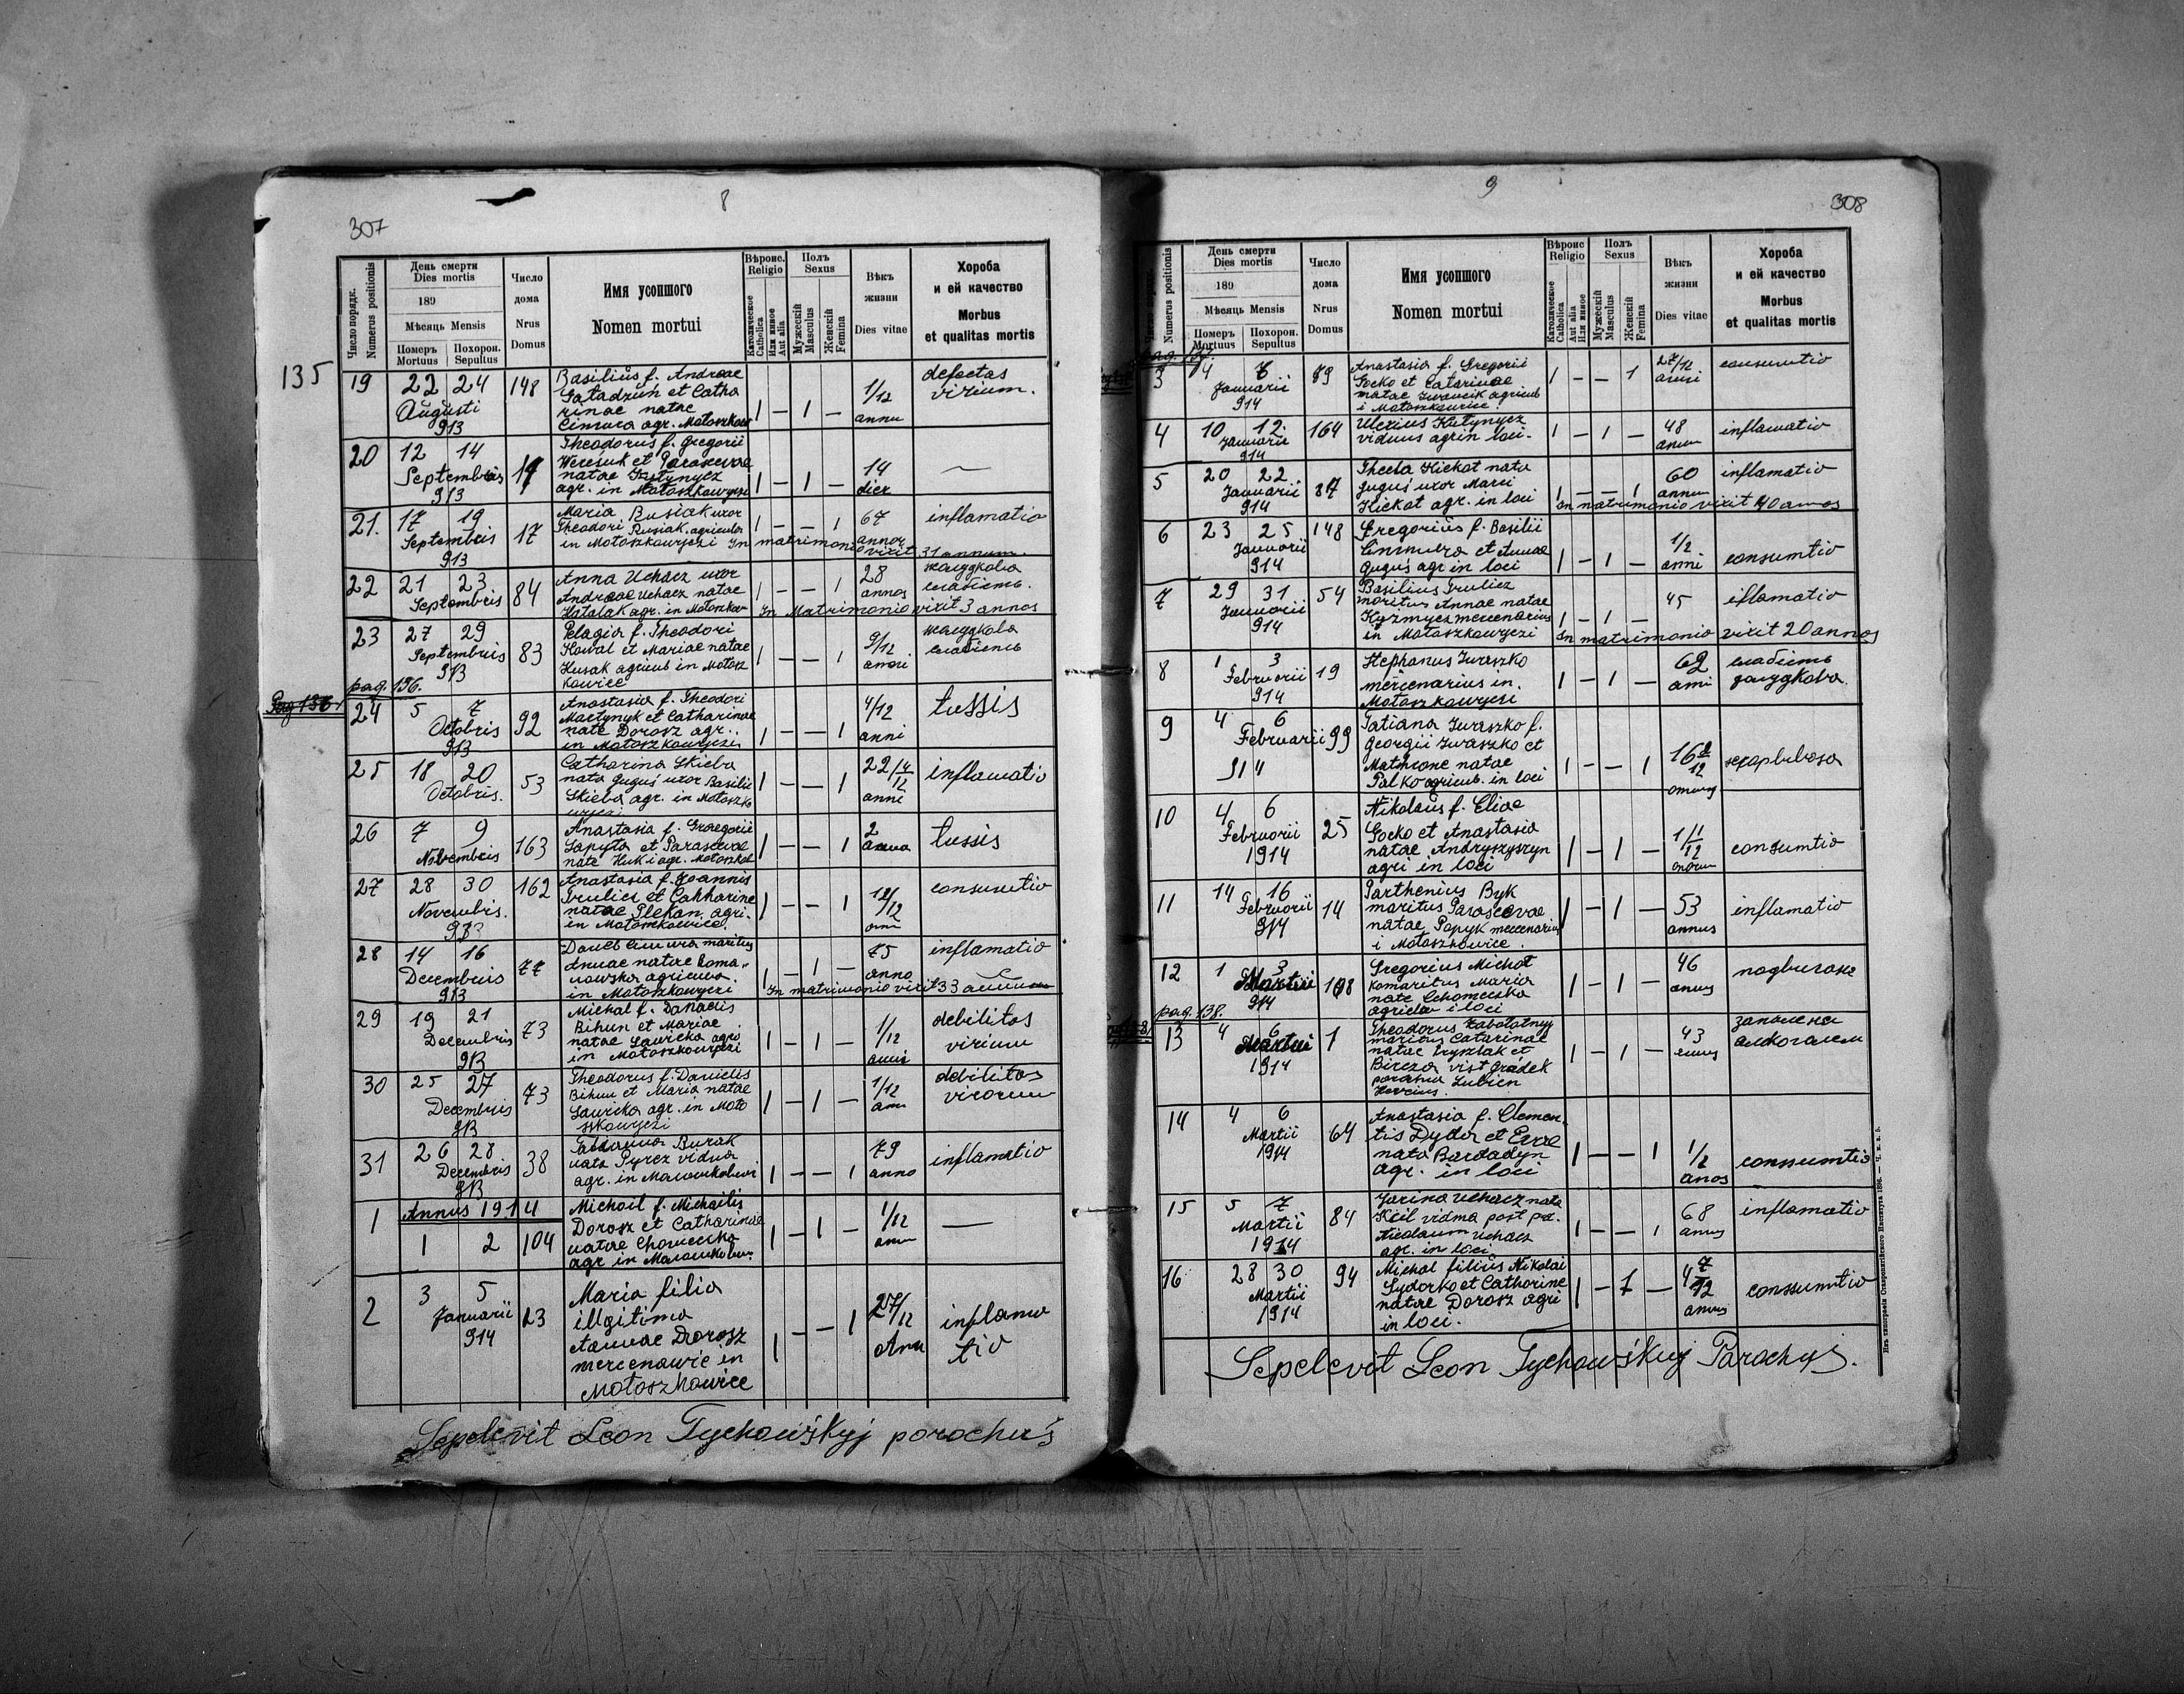 8
307
Число порядк.
Numerus positionis
День смерти
Dies mortis
189
Мѣсяць Mensis
Померъ Mortuus
Похорон. Sepultus
Число дома
Nrus Domus
Имя усопшого
Nomen mortui
Вѣроис. Religio
Католическое Catholica
Или иное Aut alia
Полъ Sexus
Мужескій Masculus
Женскій Femina
Вѣкъ жизни
Dies vitae
Хороба и ей качество
Morbus et qualitas mortis
135
19 22 24 148 Basilius f. Andreae defectas
Augusti Gatadzun et Catha 1/12 virium.
913 rinae natae 1 – 1 – annu
agr. Motoszkow
20 12 14 Theodorus f. Gregorii
Septembris Weresiuk et Parascevae 14 —
913 natae 1 – 1 – dies
agr. in Motoszkowyczi
21. 17 19 17 Maria Rusiak uxor 1 – – 1 67 inflamatio
Septembris Theodori Rusiak agricola annor
913 in Motoszkowyczi In matrimonio vixit 31 annum.
22 21 23 84 Anna Uchacz uxor 28 жолудкова
Septembris Andreae Uchacz natae 1 – – 1 annos слабість.
Hatalak agr. in Motoszkow In Matrimonio vixit 3 annos
23 27 29 83 Pelagia f. Theodori 9/12 жолудкова
Septembris Kowal et Mariae natae 1 – – 1 слабість
913 Husak agricol in Motosz
kowice
pag. 136.
24 5 7 92 Anastasia f. Theodori 4/12 tussis
Octobris Martynyk et Catharinae anni
913 nate Dorosz agr. 1 – – 1
in Motoszkowyczi
25 18 20 53 Catharina Skieba 22 4/12 inflamatio
Octobris. nata Guguś uxor Basilii 1 – – 1 anni
Skieba agr. in Motoszko
wyczi
26 7 9 163 Anastasia f. Gregorii 2 tussis
Novembris Sapyta et Parascevae 1 – – 1
nate Huk agr. Motoszkow
27 28 30 162 Anastasia f. Joannis 12/12 consumtio
Novembris. Trulicz et Catharine 1 – – 1
913 natae Plekan. agri.
in Motoszkowice.
28 14 16 77 maritus 75 inflamatio
Decembris Annae natae Roma- 1 – 1 – anno
913 nowska agricola In matrimonio vixit 33
in Motoszkowyczi
29 19 21 73 Michal f. Danielis 1/12 debilitas
Decembris Bihun et Mariae 1 – 1 – virium
913 natae Sawicka agri
in Motoszkowyczi
30 25 27 73 Theodorus f. Danielis 1/12 debilitas
Decembris Bihun et Maria natae 1 – 1 –
913 Sawicka agr. in Moto
szkowyczi
31 26 28 38 Burak 79 inflamatio
Decembris nata Pyrcz vidua 1 – – 1 anno
913 agr. in
Annus 1914
1 1 2 104 Michail f. Michailis 1/12 —
Dorosz et Catharinae 1 – 1 –
natae Chomecka
agr in
2 3 5 23 Maria filia 27/12 inflama
Januarii illgitima 1 – – 1 tio
914 Annae Dorosz
mercenarie in
Motoszkowice
Sepelevit Leon Tychowśkyj parochus
9
308
Numerus positionis
День смерти
Dies mortis
189
Мѣсяць Mensis
Померъ Mortuus
Похорон. Sepultus
Число дома
Nrus Domus
Имя усопшого
Nomen mortui
Вѣроис Religio
Католическое Catholica
Aut alia Или иное
Полъ Sexus
Мужескій Masculus
Женскій Femina
Вѣкъ жизни
Dies vitae
Хороба и ей качество
Morbus et qualitas mortis
pag. 137.
3 4 6 Anastasia f. Gregorii 27/12 consumtio
Januarii Gocko et Catarinae 1 – – 1 anni
914 natae Iwancik agricol
i Motoszkowice.
4 10 12. 164 Hutynycz 48 inflamatio
Januarii viduus agr in loci. 1 – 1 –
914
5 20 22. 87 Thecla Kickot nata 60 inflamatio
Januarii Guguś uxor Marci 1 – – 1 annum
914 Kickot agr. in loci In matrimonio vixit 40 annos
6 23 25 148 Gregorius f. Basilii 1/2 consumtio
Januarii et Annae 1 – 1 – anni
914 Guguś agr in loci
7 29 31 54 Basilius Trulicz 45 iflamatio
Januarii maritus Annae natae 1 – 1 –
914 Kyzmycz mercenarius
in Motoszkowyczi In matrimonio vixit 20 annos
8 1 3 19 Stephanus Iwaszko 62 слабість
Februarii mercenarius in. 1 – 1 –
914 Motoszkowyczi
9 4 6 99 Tatiana Iwaszko f.
Februarii Georgii Iwaszko et 16
914 Mathrone natae 1 – – 1
Palko agricol. in loci
10 4 6 25 Nikolaus f. Eliae
Februarii Gocko et Anastasia 1 – 1 – 1 1/12 consumtio
1914 natae Andryszyszyn
agri in loci
11 14 16 14 Parthenius Byk 53 inflamatio
Februarii maritus Parascevae 1 – 1 – annus
914 natae Popyk mercenarius
i Motoszkowice.
12 1 3 Gregorius Michat 46
Martii maritus Maria 1 – 1 – annus
914 nate Chomecka
agricola i loci
pag. 138.
13 4 6 1 Theodorus Zabolotnyj 43
Martii maritus Catarinae 1 – 1 – алкоголем
1914 natae Hryszlak et
Bircza vist Gradek
Lubien
14 4 6 64 Anastasia f. Clemen-
Martii tis Dyda et Evae 1/2 conssumtio
1914 nata Bardadyn 1 – – 1 anos
agr. in loci
15 5 7 84 Jarina Uchacz nata 68 inflamatio
Martii Kicil vidma post pa. 1 – – 1 annus
1914 Nicolaum Uchacz
agr. in loci
16 28 30 94 Michal filius Nikolai 4 7/12 conssumtio
Martii Sydorko et Catharine 1 – 1 – annus
1914 natae Dorosz agri
in loci.
Sepelevit Leon Tychowśkyj Parochus.
Изъ типографіи Ставропигійского Института 1896. — Ч. к. в. 5.